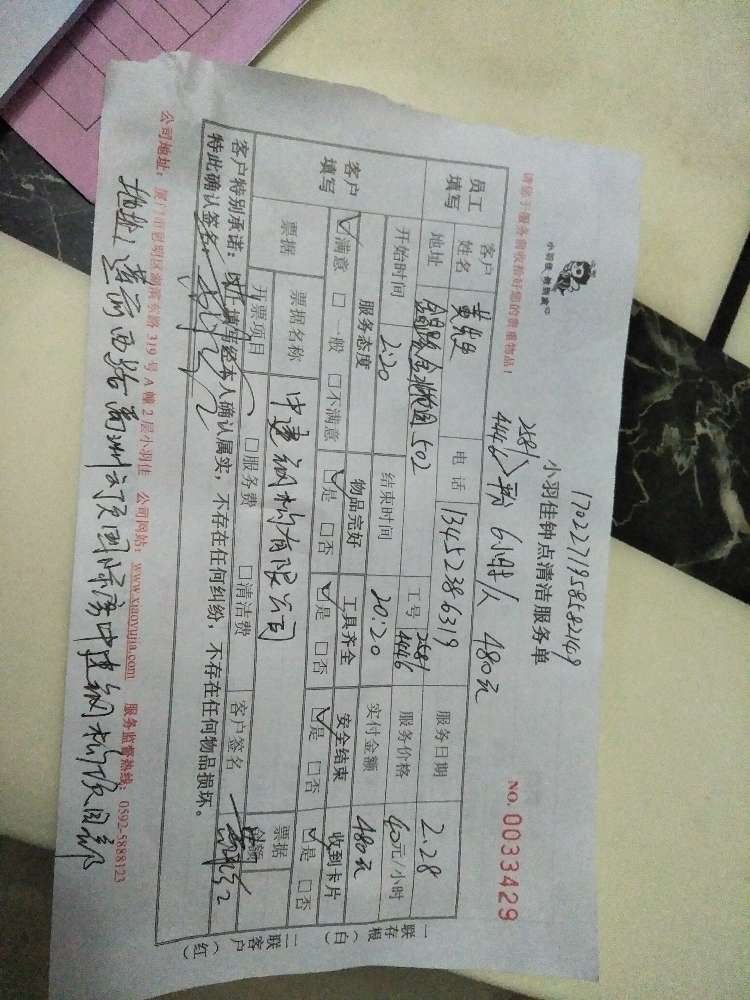 1702271958582149
小羽佳钟点清洁服务单
小羽佳 教到家
NO. 0033429
请您于服务前收拾好您的贵重物品!
2581
4446 6小时/人 480元
员工填写
客户姓名
电话 13452386319
服务日期 2.28
地址 502
工号 2581 4446
服务价格 40元/小时
开始时间 2:20
结束时间 20:20
实付金额 480元
客户填写
服务态度 物品完好 工具齐全 安全结束 收到卡片
☑满意 □一般 □不满意 ☑是 □否 ☑是 □否 ☑是 □否 ☑是 □否
票据
票据名称 中建钢构有限公司
票据金额
开票项目 □服务费 □清洁费
客户签名
客户特别承诺:以上填写经本人确认属实,不存在任何纠纷,不存在任何物品损坏。
特此确认签名:
一联存根(白)
二联客户(红)
公司地址:厦门市思明区湖滨东路 319 号 A 幢 2 层小羽佳 公司网站:www.xiaoyujia.com 服务监督热线:0592-5888123
地址:莲前西路禹洲云顶国际旁中建钢构项目部